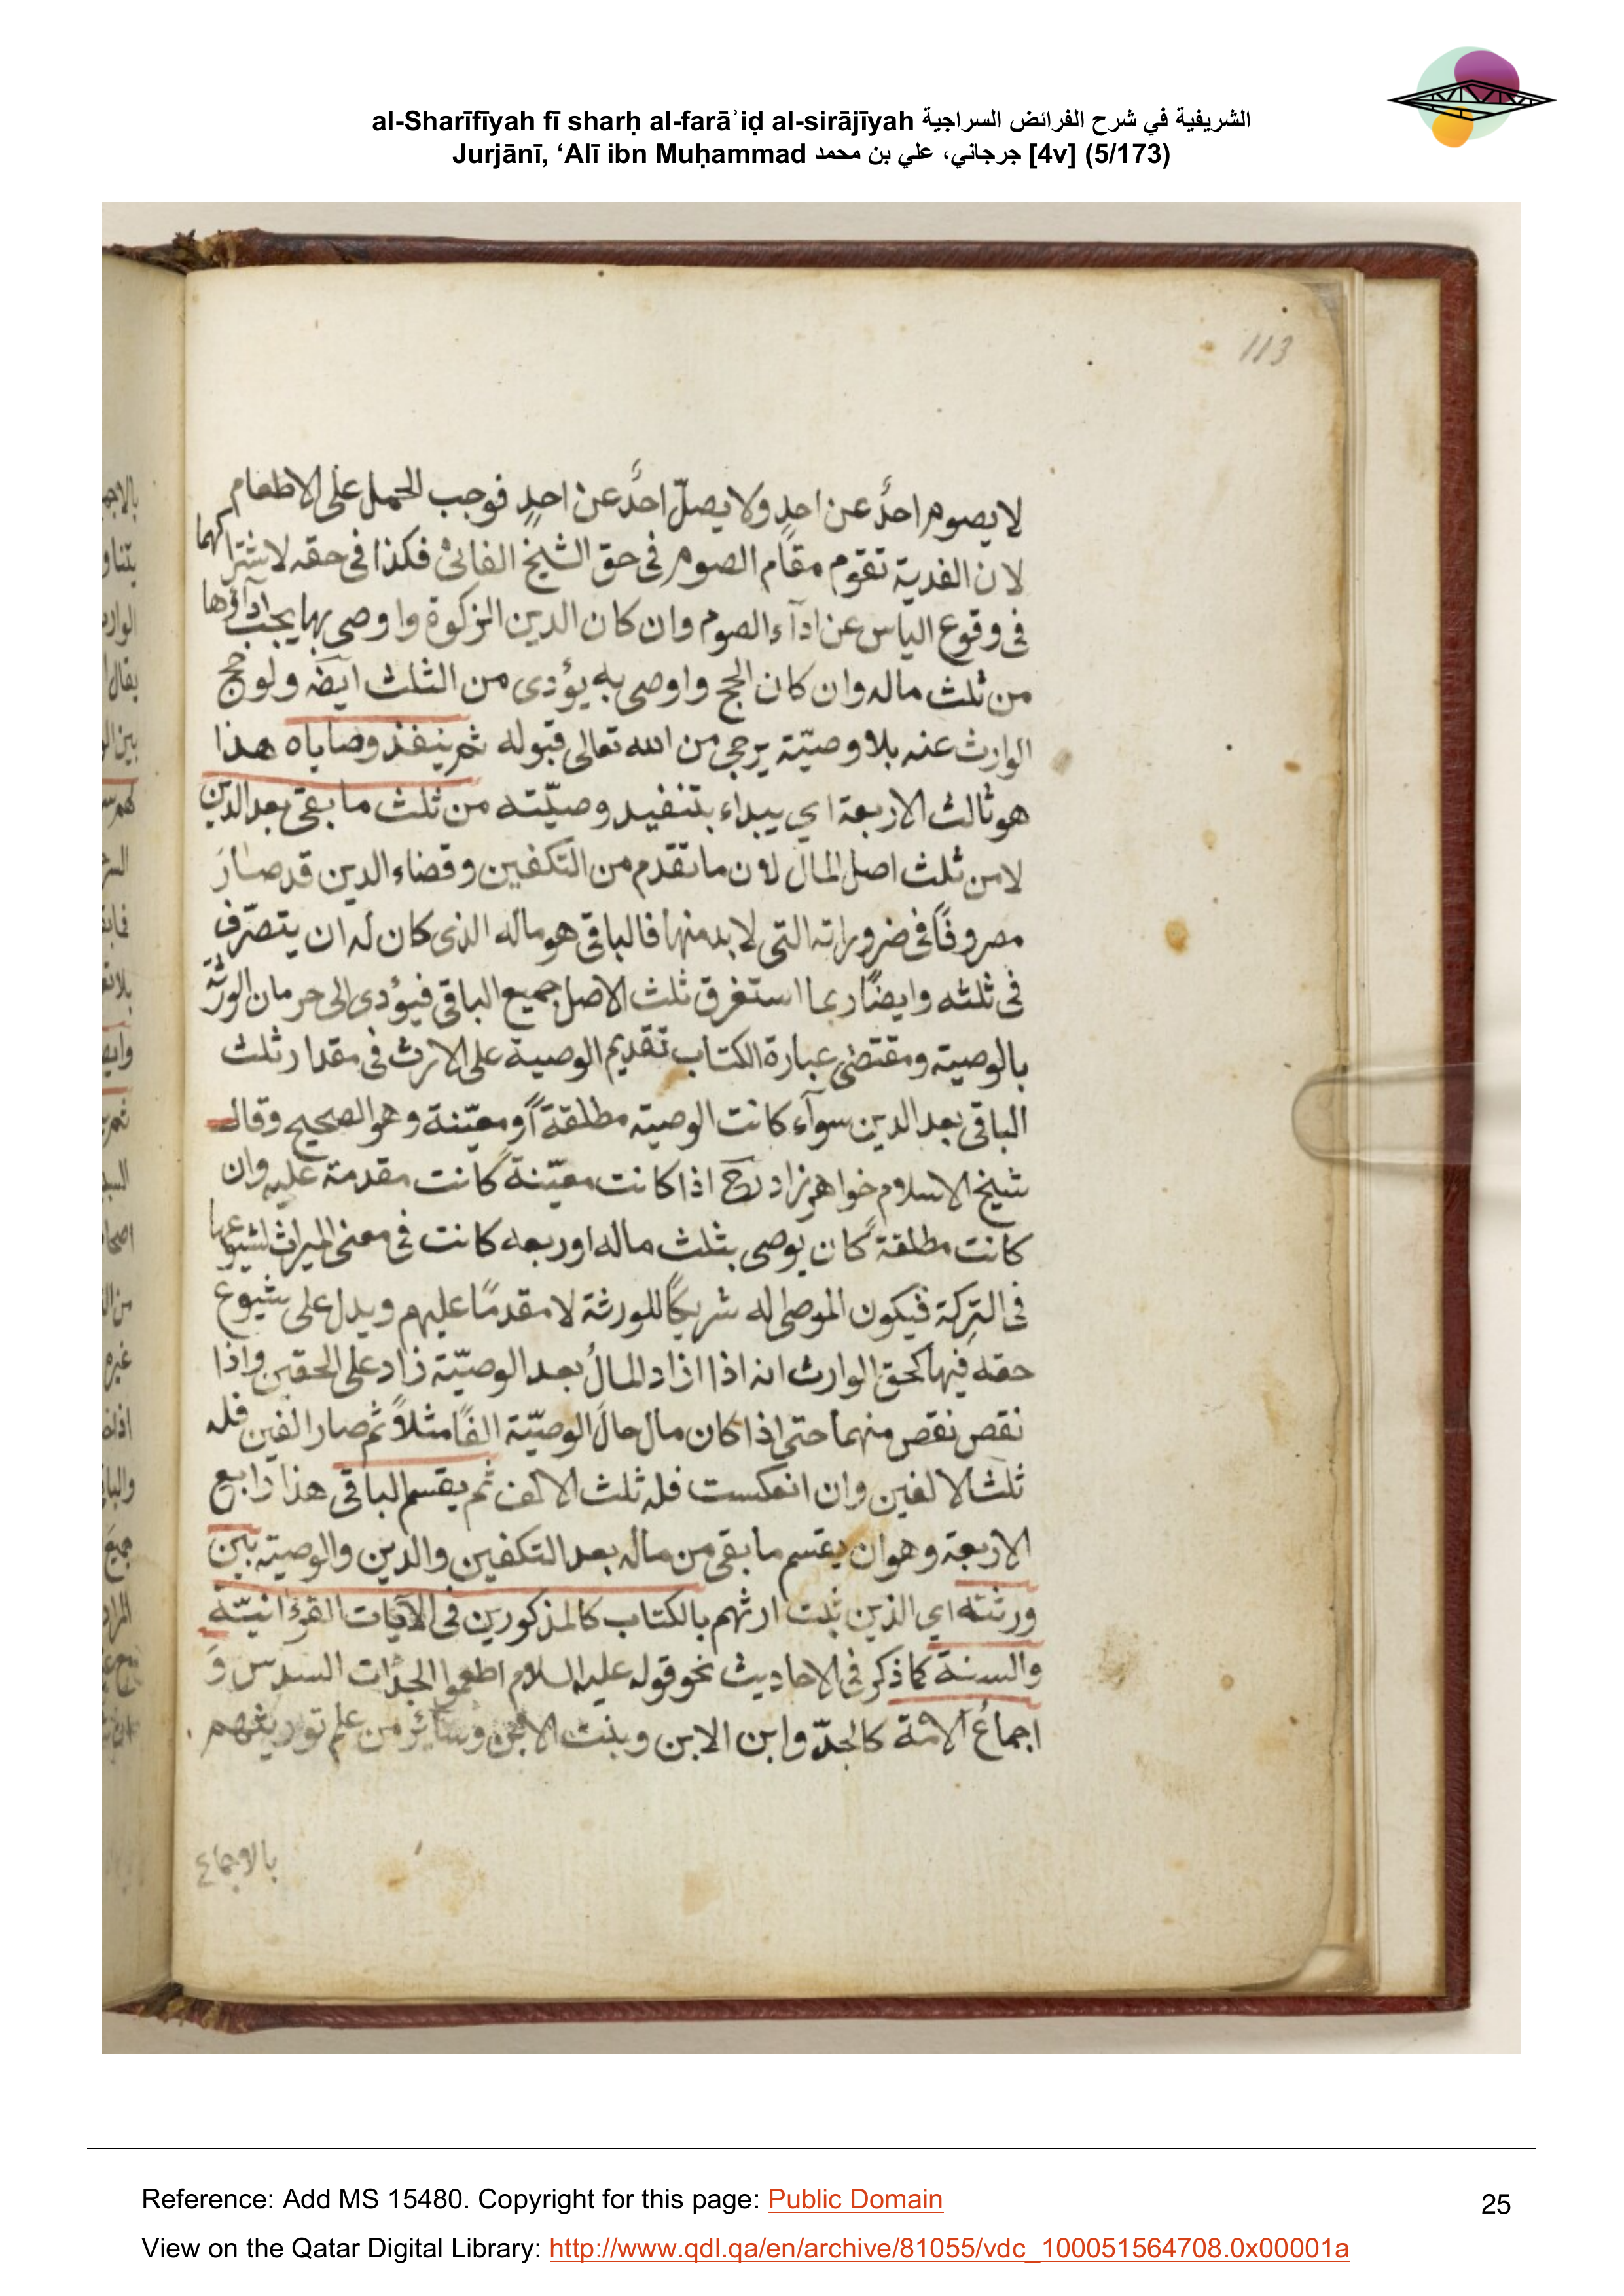 al-Sharīfīyah fī sharḥ al-farāʾiḍ al-sirājīyah الشريفية في شرح الفرائض السراجية
Jurjānī, ‘Alī ibn Muḥammad جرجاني، علي بن محمد [4v] (5/173)
113
لا يصوم احدٌ عن احدٍ ولا يصلّ احدٌ عن احدٍ فوجب الحمل على الاطعام
لان الفدية تقوم مقام الصوم فى حق الشيخ الفانى فكذا فى حقه لاشتراكهما
فى وقوع الياس عن ادآء الصوم وان كان الدين الزكوة واوصى بها يجب اداؤها
من ثلث ماله وان كان الحج واوصى به يؤدى من الثلث ايضه ولو حج
الوارث عنه بلا وصيّة يرجى من الله تعالى قبوله ثم ينفذ وصاياه هذا
هو ثالث الاربعة اي يبداء بتنفيد وصيّته من ثلث ما بقى بعد الدين
لا من ثلث اصل المال لان ما تقدم من التكفين وقضاء الدين قد صار
مصروفًا فى ضروراته التى لا بد منها فالباقى هو ماله الذى كان له ان يتصرّف
فى ثلثه وايضًا ربما استغرق ثلث الاصل جميع الباقى فيؤدى الى حرمان الورثة
بالوصية ومقتضى عبارة الكتاب تقديم الوصية على الارث فى مقدار ثلث
الباقى بعد الدين سوآء كانت الوصية مطلقة او معيّنة وهو الصحيح وقال
شيخ الاسلام خواهر زاد رح اذا كانت معيّنة كانت مقدمة عليه وان
كانت مطلقة كان يوصى بثلث ماله او ربعه كانت فى معنى الميراث لشيوعها
فى التركة فيكون الموصى له شريكًا للورثة لا مقدمًا عليهم ويدل على شيوع
حقه فيها كحق الوارث انه اذا ازاد المالُ بعد الوصيّة زاد على الحقين واذا
نقص نقص منهما حتى اذا كان مال حالَ الوصيّة الفًا مثلاً ثم صار الفين فله
ثلث الالفين وان انعكست فله ثلث الالف ثم يقسم الباقى هذا رابع
الاربعة وهو ان يقسم ما بقى من ماله بعد التكفين والدين والوصية بين
ورثته اي الذين ثبت ارثهم بالكتاب كالمذكورين فى الآيات القرءانيّة
والسنة كما ذكر فى الاحاديث نحو قوله عليه السلام اطعموا الجدّات السدس وَ
اجماعُ الامة كالجدّ وابن الابن وبنت الابن وسائر من علم توريثهم
بالاجماع
Reference: Add MS 15480. Copyright for this page: Public Domain
25
View on the Qatar Digital Library: http://www.qdl.qa/en/archive/81055/vdc_100051564708.0x00001a